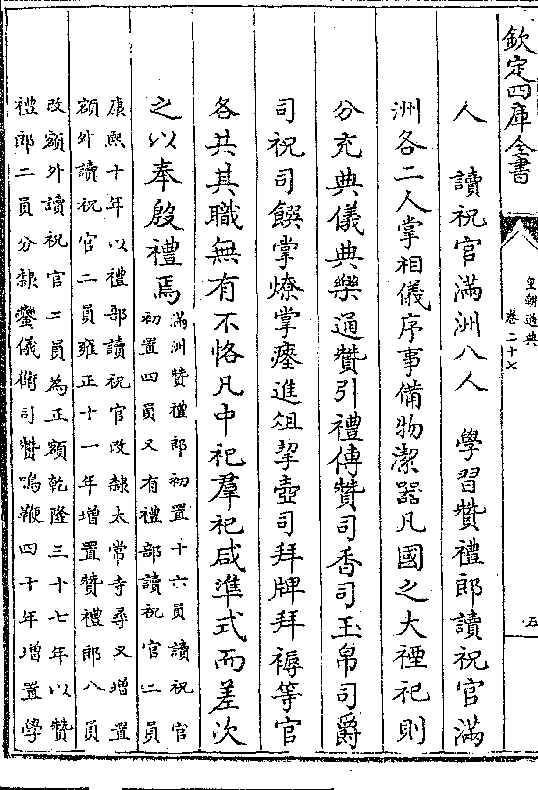 欽定四庫全書
皇朝通典
卷二十七
五
人　讀祝官滿洲八人　學習贊禮郎讀祝官滿
洲各二人掌相儀序事備物潔器凡國之大禋祀則
分充典儀典樂通贊引禮傳贊司香司玉帛司爵
司祝司饌掌燎掌瘞進俎挈壺司拜牌拜褥等官
各共其職無有不恪凡中祀羣祀咸準式而差次
之以奉殷禮焉
滿洲贊禮郎初置十六員讀祝官
初置四員又有禮部讀祝官二員
康熙十年以禮部讀祝官改隸太常寺尋又增置
額外讀祝官二員雍正十一年增置贊禮郎八員
改額外讀祝官二員為正額乾隆三十七年以贊
禮郎二員分隸鑾儀衛司贊鳴鞭四十年增置學